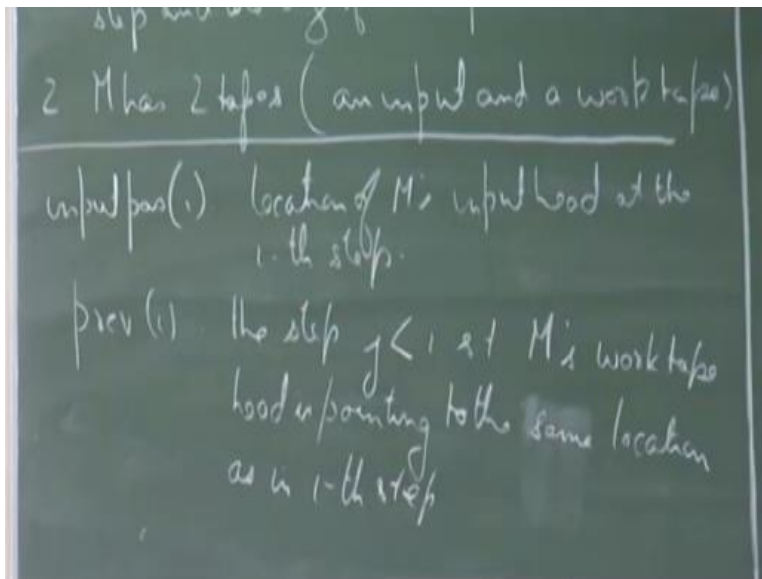 step and
2 M has 2 tapes (an input and a work tape)
inputpos(i) location of M's input head at the
i-th step.
prev(i) the step j < i s.t M's work tape
head is pointing to the same location
as in i-th step